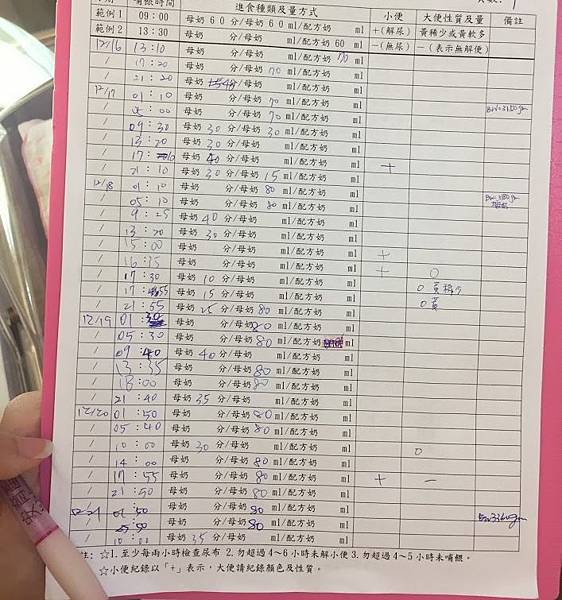 哺餵時間 進食種類及量方式 小便 大便性質及量 備註
範例1 09:00 母奶60分/母奶60ml/配方奶 ml +(解尿) 黃稀少或黃軟多
範例2 13:30 母奶 分/母奶 ml/配方奶60 ml -(無尿) -(表示無解便)
12/16 13:10 母奶 分/母奶 ml/配方奶 70 ml
/ 17:20 母奶 分/母奶 70 ml/配方奶 ml
/ 21:20 母奶 分/母奶 ml/配方奶 ml
12/17 01:10 母奶 分/母奶 70 ml/配方奶 ml
/ :00 母奶 分/母奶 70 ml/配方奶 ml
/ 09:30 母奶 30 分/母奶 30 ml/配方奶 ml
/ 13:20 母奶 30 分/母奶 ml/配方奶 ml
/ 17: 母奶 40 分/母奶 ml/配方奶 ml +
/ 21:10 母奶 30 分/母奶 15 ml/配方奶 ml
12/18 01:10 母奶 分/母奶 80 ml/配方奶 ml
/ 05:10 母奶 分/母奶 80 ml/配方奶 ml
/ 9:25 母奶 40 分/母奶 ml/配方奶 ml
/ 13:20 母奶 30 分/母奶 ml/配方奶 ml
/ 15:00 母奶 分/母奶 ml/配方奶 ml +
/ 16:35 母奶 分/母奶 ml/配方奶 ml + 0
/ 17:30 母奶 10 分/母奶 ml/配方奶 ml 0 黃
/ 17:55 母奶 15 分/母奶 ml/配方奶 ml 0 黃
/ 21:55 母奶 25 分/母奶 80 ml/配方奶 ml
12/19 01:30 母奶 分/母奶 80 ml/配方奶 ml
/ 05:30 母奶 分/母奶 80 ml/配方奶 ml
/ 09:40 母奶 40 分/母奶 ml/配方奶 ml
/ 13:35 母奶 分/母奶 80 ml/配方奶 ml
/ 18:00 母奶 分/母奶 80 ml/配方奶 ml
/ 21:40 母奶 35 分/母奶 ml/配方奶 ml
12/20 01:50 母奶 分/母奶 80 ml/配方奶 ml
/ 05:40 母奶 分/母奶 80 ml/配方奶 ml
/ 10:00 母奶 30 分/母奶 ml/配方奶 ml 0
/ 14:00 母奶 分/母奶 80 ml/配方奶 ml
/ 17:55 母奶 分/母奶 80 ml/配方奶 ml + -
/ 21:50 母奶 分/母奶 80 ml/配方奶 ml
:50 母奶 分/母奶 80 ml/配方奶 ml
/ :50 母奶 分/母奶 80 ml/配方奶 ml
/ 10:01 母奶 35 分/母奶 ml/配方奶 ml
註: ☆1.至少每兩小時檢查尿布 2.勿超過4~6小時未解小便 3.勿超過4~5小時未哺餵。
☆小便紀錄以「+」表示,大便請紀錄顏色及性質。